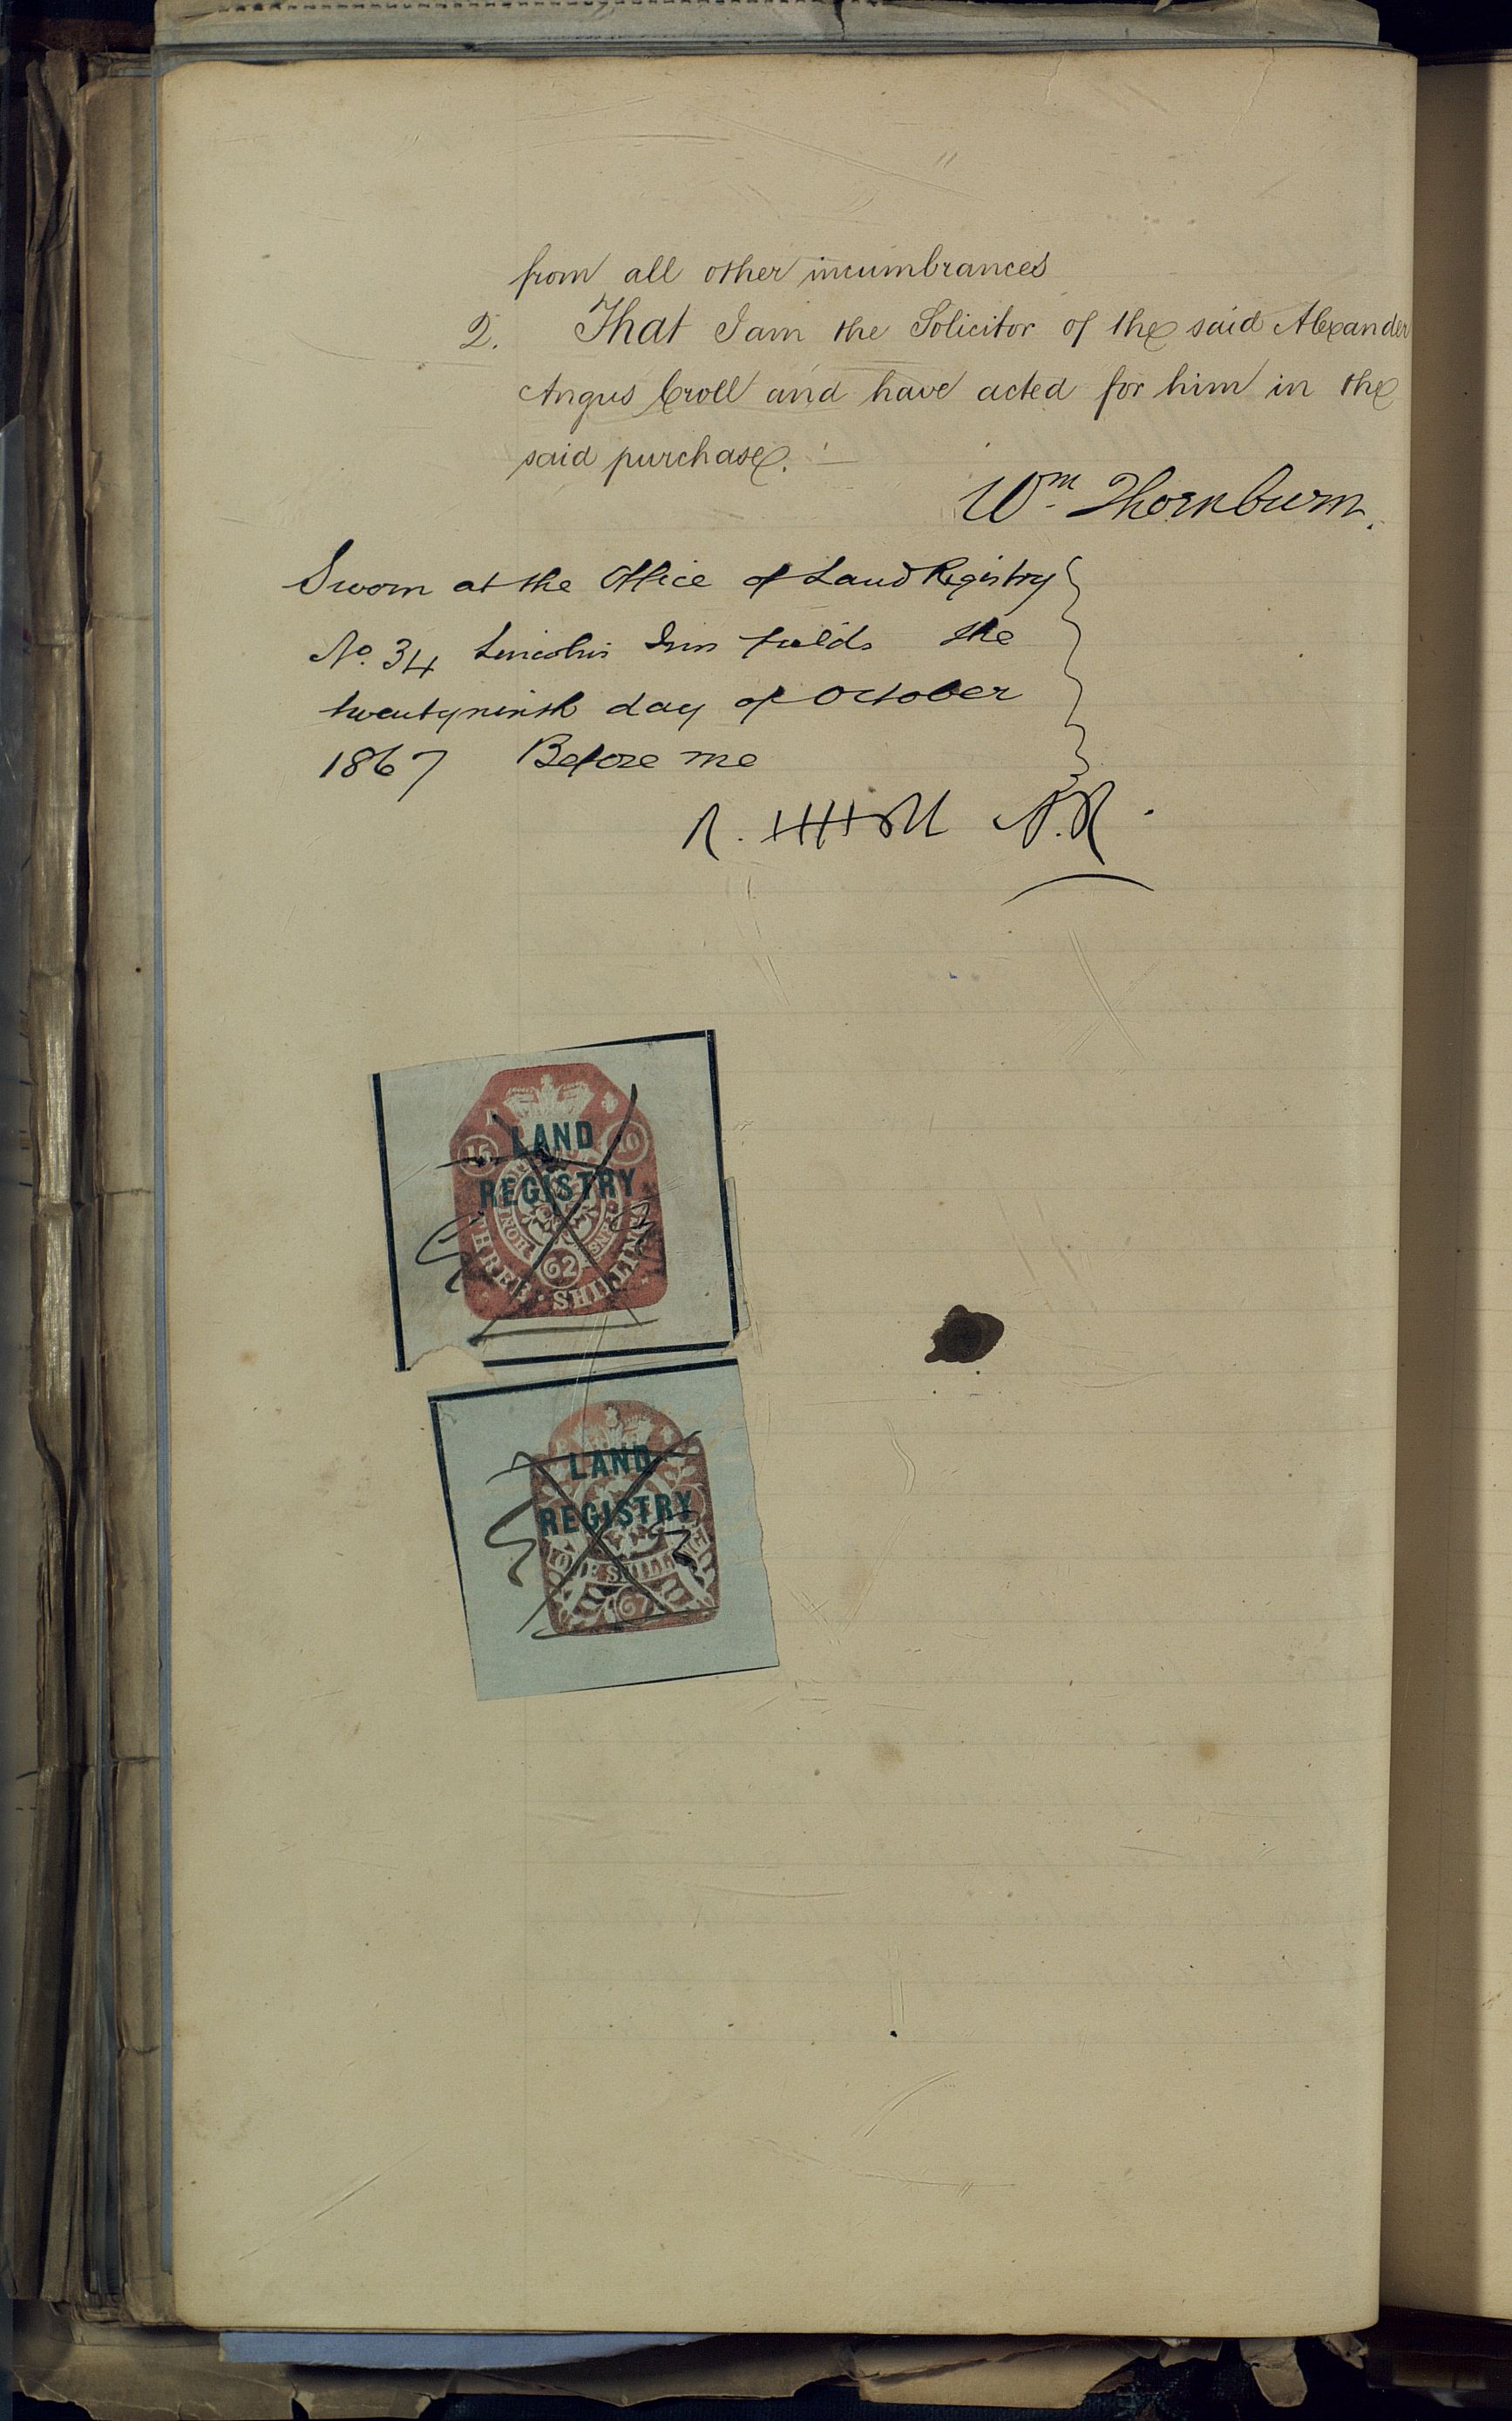 from all other incumbrances
2. That I am the Solicitor of the said Alexander
Angus Croll and have acted for him in the
said purchase.
Wm Thornburn.
Sworn at the Office of Land Registry
No. 34 Lincolns Inn fields the
twentyninth day of October
1867 Before me
LAND
REGISTRY
15 10
62
THREE SHILLINGS
LAND
REGISTRY
ONE SHILLING
67